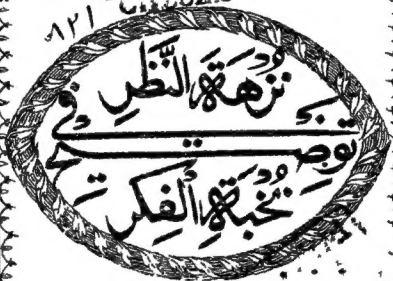 ٨٢١
نُزْهَةُ النَّظَرِ
فِي
تَوْضِيحِ
نُخْبَةِ الْفِكَرِ